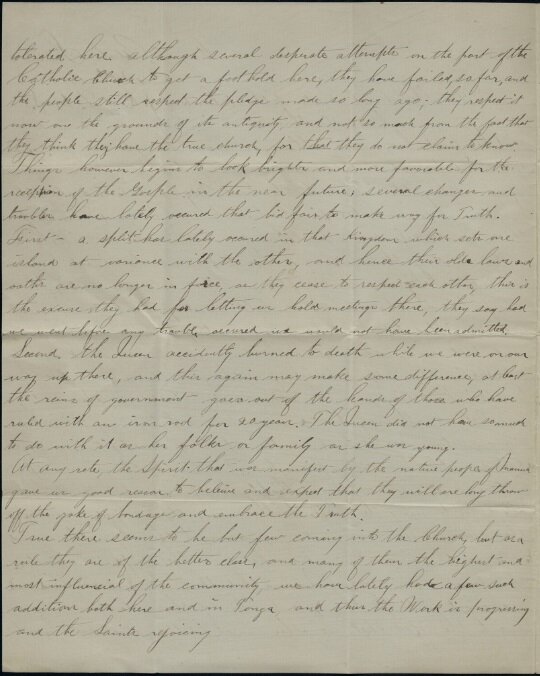 tolerated here. although several desperate attempts on the part of the
Catholic Church to get a foothold here, they have failed, so far, and
the people still respect the pledge made so long ago - they respect it
now on the grounds of its antiquity and not so much from the fact that
they think they have the true church, for that they do not claim to know.
Things however begins to look brighter and more favorable for the
reception of the Gosple in the near future; several changes and
troubles have lately occured that bid fair to make way for Truth.
First - a split has lately occured in that Kingdom which sets one
island at variance with the other, and hence their old laws and
oaths are no longer in force, as they cease to respect each other, this is
the excuse they had for letting us hold meetings there, they say had
we went before any trouble occured we would not have been admitted.
Second, the Queen accidently burned to death while we were on our
way up there, and this again may make some difference, at least
the reins of government goes out of the hands of those who have
ruled with an iron rod for 20 years. The Queen did not have so much
to do with it as her folks or family as she was young.
At any rate the Spirit that was manifest by the native people of Manua
gave us good reason to believe and expect that they will ere long throw
off the yoke of bondage and embrace the Truth.
True there seems to be but few coming into the Church, but as a
rule they are of the better class, and many of them the highest and
most influencial of the community we have lately had a few such
addition both here and in Tonga and thus the Work is progressing
and the Saints rejoicing